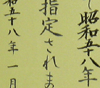 し昭和五十八年
指定されま
昭和五十八年一月